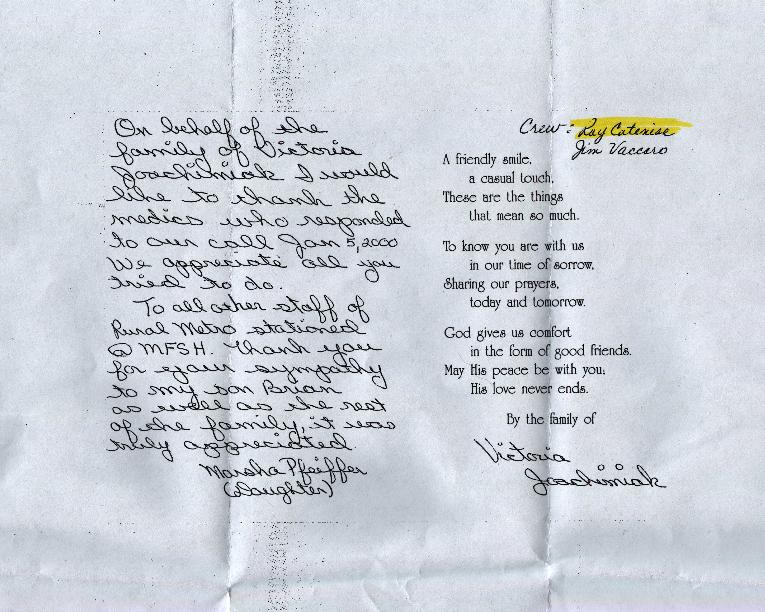 On behalf of the
family of Victoria
Joachimiak I would
like to thank the
medics who responded
to our call Jan 5, 2000
We appreciate all you
tried to do.
To all other staff of
Rural Metro stationed
@ MFSH. Thank you
for your sympathy
to my son Brian
as well as the rest
of the family, it was
truly appreciated.
Marsha Pfeiffer
(Daughter)
Crew: Ray Catenise
Jim Vaccaro
A friendly smile,
a casual touch,
These are the things
that mean so much.
To know you are with us
in our time of sorrow,
Sharing our prayers,
today and tomorrow.
God gives us comfort
in the form of good friends.
May His peace be with you;
His love never ends.
By the family of
Victoria
Joachimiak